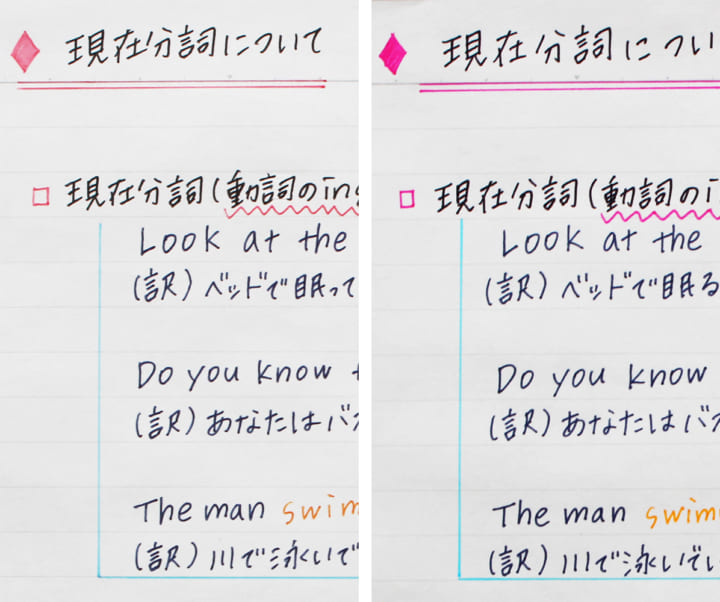 現在分詞について
現在分詞(動詞のing
Look at the
(訳)ベッドで眠って
Do you know
(訳)あなたはバス
The man swim
(訳)川で泳いで
現在分詞につい
現在分詞(動詞のi
Look at the
(訳)ベッドで眠る
Do you know
(訳)あなたはバス
The man swim
(訳)川で泳いでい